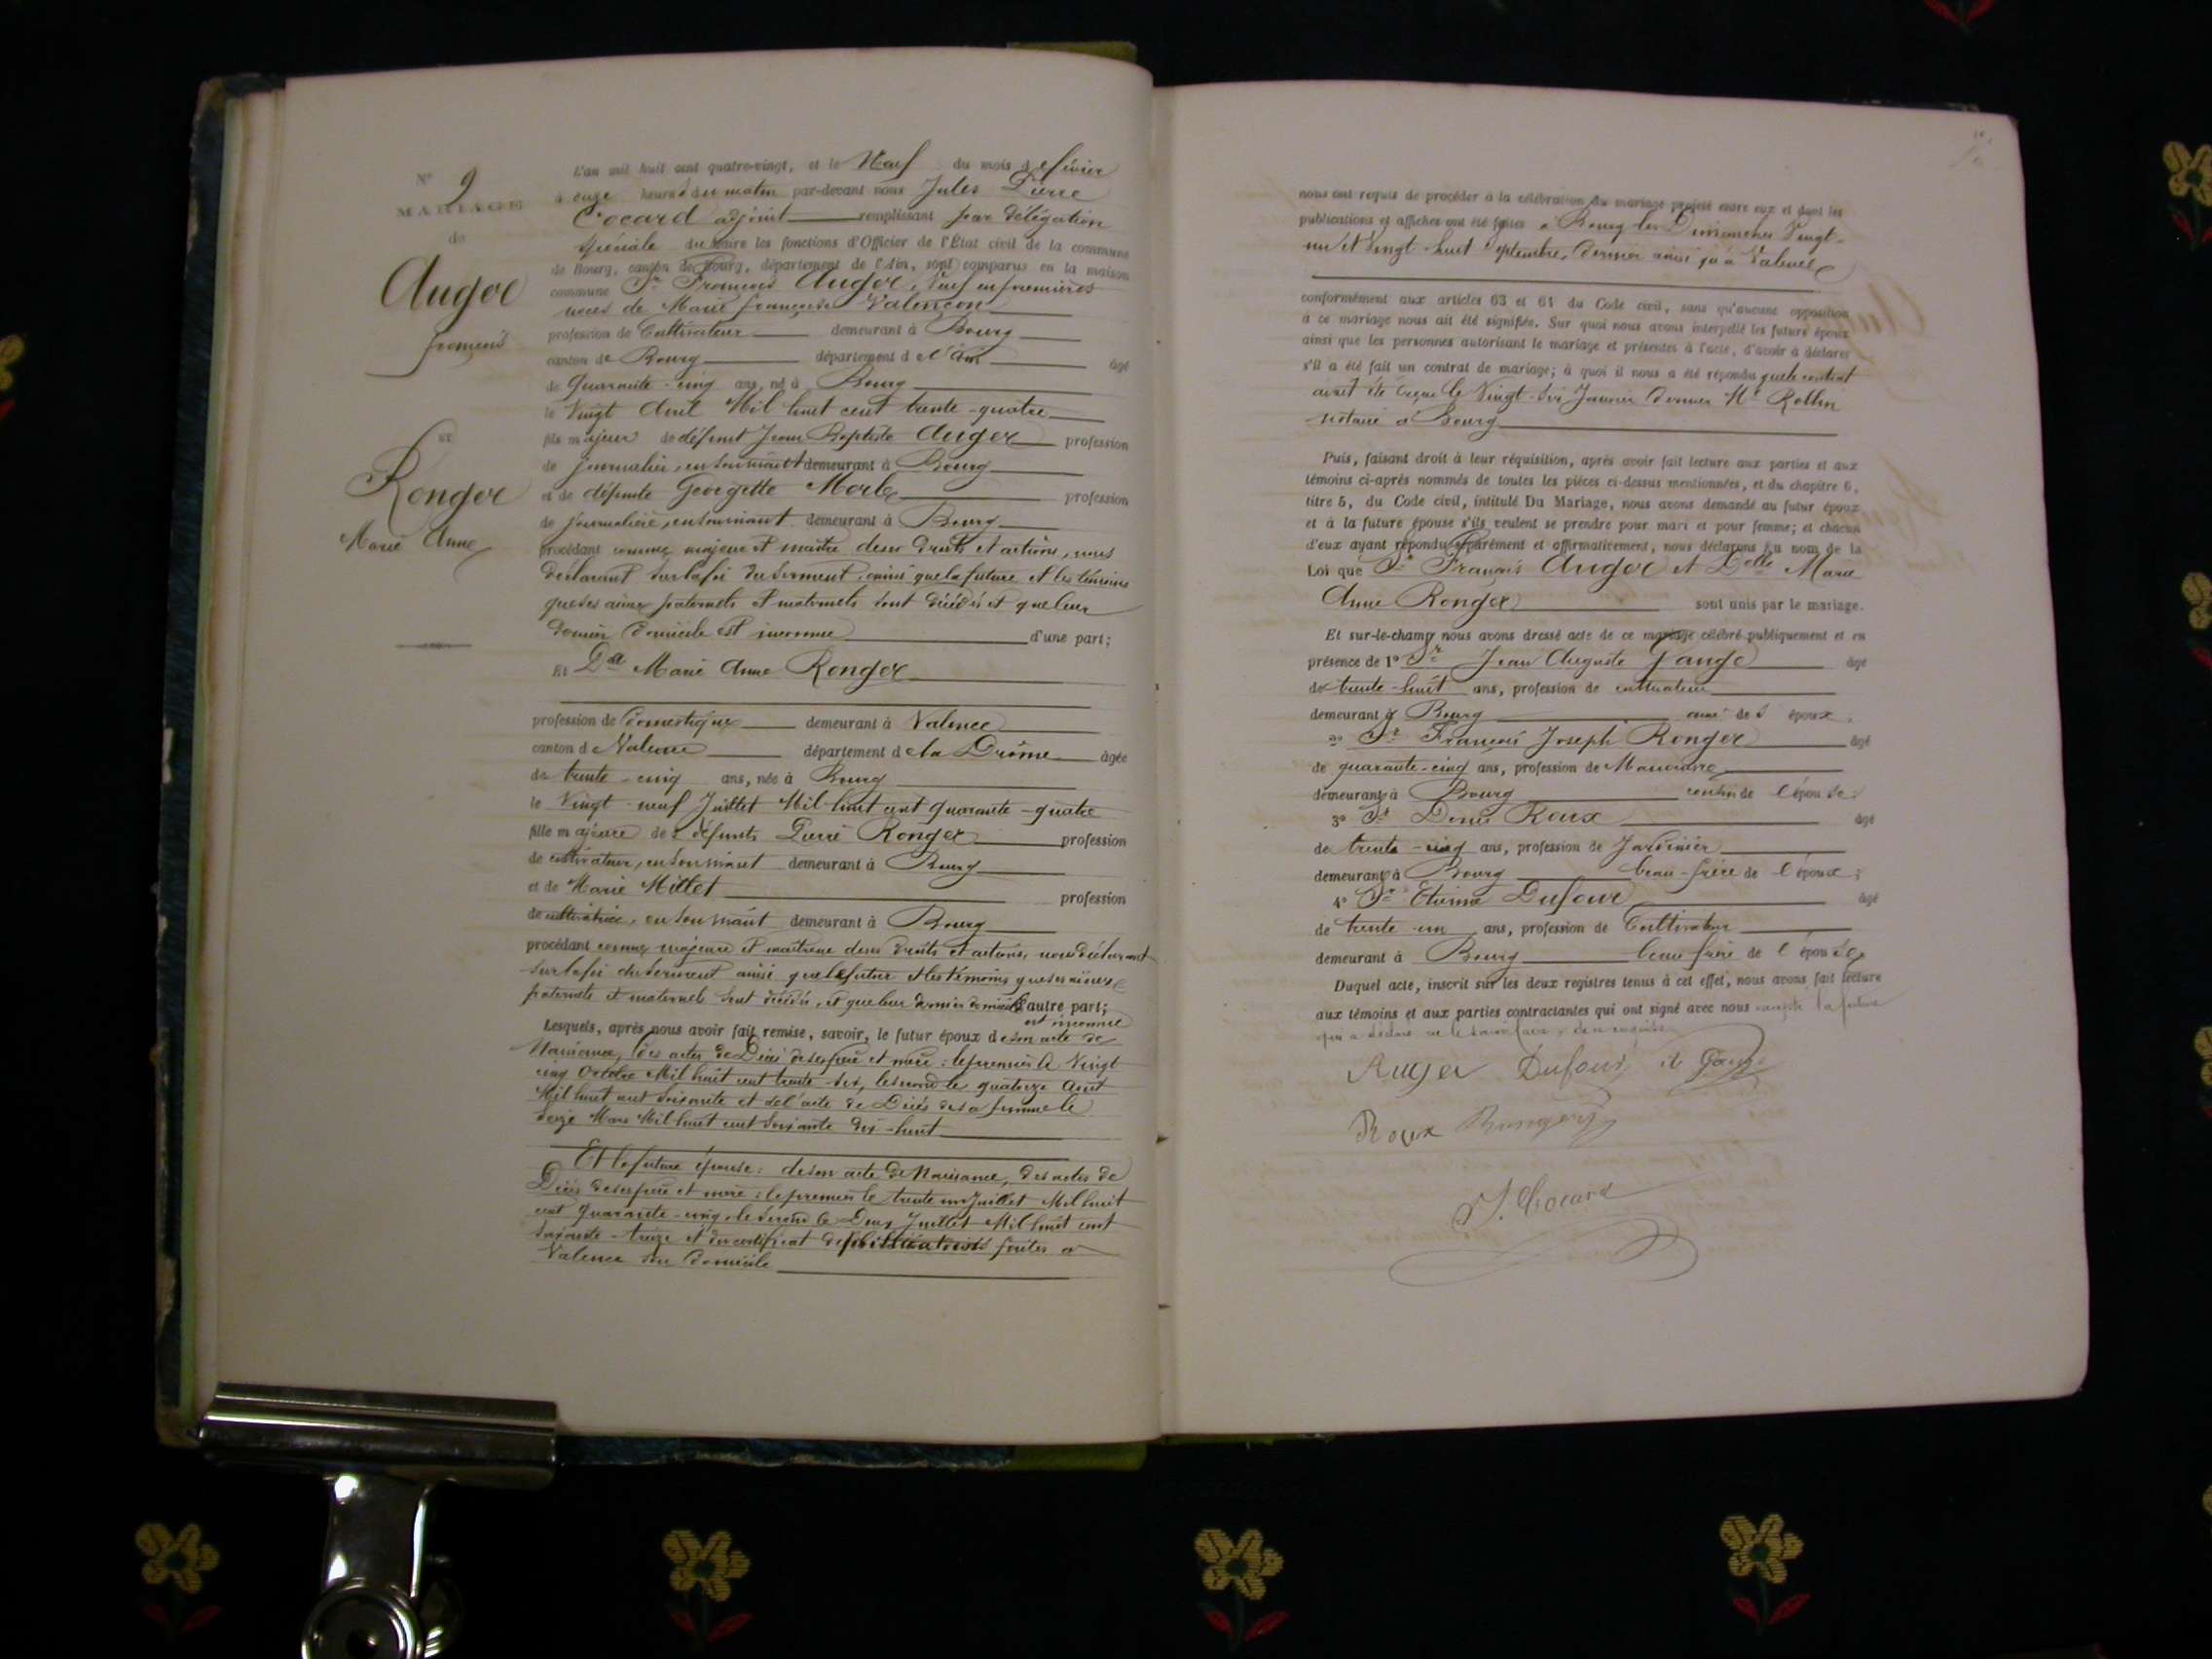 N° 9
MARIAGE
de
Auger
françois
ET
Ronger
Marie Anne
L'an mil huit cent quatre-vingt, et le Neuf du mois de février
à onze heures du matin par-devant nous Jules Pierre
Cocard adjoint remplissant par délégation
spéciale du maire les fonctions d'Officier de l'État civil de la commune
de Bourg, canton de Bourg, département de l'Ain, sont comparus en la maison
commune Sr François Auger, Veuf en premières
noces de Marie françoise Valençon
profession de Cultivateur demeurant à Bourg
canton de Bourg département de l'Ain âgé
de Quarante-cinq ans, né à Bourg
le Vingt Avril Mil huit cent trente-quatre
fils majeur de défunt Jean Baptiste Auger profession
de journalier, en son vivant demeurant à Bourg
et de défunte Georgette Morle profession
de journalière, en son vivant demeurant à Bourg
procédant comme majeur et maître de ses droits et actions, nous
déclarant sur la foi du serment, ainsi que la future et les témoins
que ses aïeux paternels et maternels sont décédés et que leur
dernier domicile est inconnu d'une part;
Et Dlle Marie Anne Ronger
profession de domestique demeurant à Valence
canton de Valence département de la Drôme âgée
de trente-cinq ans, née à Bourg
le Vingt-neuf Juillet Mil huit cent quarante-quatre
fille majeure des défunts Pierre Ronger profession
de cultivateur, en son vivant demeurant à Bourg
et de Marie Millet profession
de cultivatrice, en son vivant demeurant à Bourg
procédant comme majeure et maîtresse de ses droits et actions, nous déclarant
sur la foi du serment ainsi que le futur et les témoins que ses aïeux
paternels et maternels sont décédés, et que leur dernier domicile d'autre part;
est inconnu
Lesquels, après nous avoir fait remise, savoir, le futur époux de son acte de
Naissance, des actes de Décès de ses père et mère : le premier le Vingt
cinq Octobre Mil huit cent trente-six, le second le quatorze Août
Mil huit cent soixante et de l'acte de Décès de sa femme le
seize Mars Mil huit cent soixante dix-huit
Et la future épouse : de son acte de Naissance, des actes de
Décès de ses père et mère : le premier le trente un Juillet Mil huit
cent quarante-cinq, le second le Deux Juillet Mil huit cent
soixante-treize et du certificat de publications faites à
Valence son domicile
nous ont requis de procéder à la célébration du mariage projeté entre eux et dont les
publications et affiches ont été faites à Bourg les Dimanches Vingt-
un et Vingt-huit Septembre, dernier ainsi qu'à Valence
conformément aux articles 63 et 64 du Code civil, sans qu'aucune opposition
à ce mariage nous ait été signifiée. Sur quoi nous avons interpellé les futurs époux
ainsi que les personnes autorisant le mariage et présentes à l'acte, d'avoir à déclarer
s'il a été fait un contrat de mariage; à quoi il nous a été répondu que le contrat
avait été reçu le Vingt-six Janvier dernier Me Rollin
notaire à Bourg
Puis, faisant droit à leur réquisition, après avoir fait lecture aux parties et aux
témoins ci-après nommés de toutes les pièces ci-dessus mentionnées, et du chapitre 6,
titre 5, du Code civil, intitulé Du Mariage, nous avons demandé au futur époux
et à la future épouse s'ils veulent se prendre pour mari et pour femme; et chacun
d'eux ayant répondu séparément et affirmativement, nous déclarons au nom de la
Loi que Sr François Auger et Delle Marie
Anne Ronger sont unis par le mariage.
Et sur-le-champ nous avons dressé acte de ce mariage célébré publiquement et en
présence de 1° Sr Jean Auguste Gauge âgé
de trente-huit ans, profession de cultivateur
demeurant à Bourg ami des époux,
2° Sr François Joseph Ronger âgé
de quarante-cinq ans, profession de Manœuvre
demeurant à Bourg cousin de l'épouse;
3° Sr Denis Roux âgé
de trente-cinq ans, profession de Jardinier
demeurant à Bourg beau-frère de l'époux;
4° Sr Etienne Dufour âgé
de trente-un ans, profession de Cultivateur
demeurant à Bourg beau frère de l'épouse
Duquel acte, inscrit sur les deux registres tenus à cet effet, nous avons fait lecture
aux témoins et aux parties contractantes qui ont signé avec nous excepté la future
qui a déclaré ne le savoir faire, de ce requise
Auger Dufour
Roux Ronger
J. Cocard